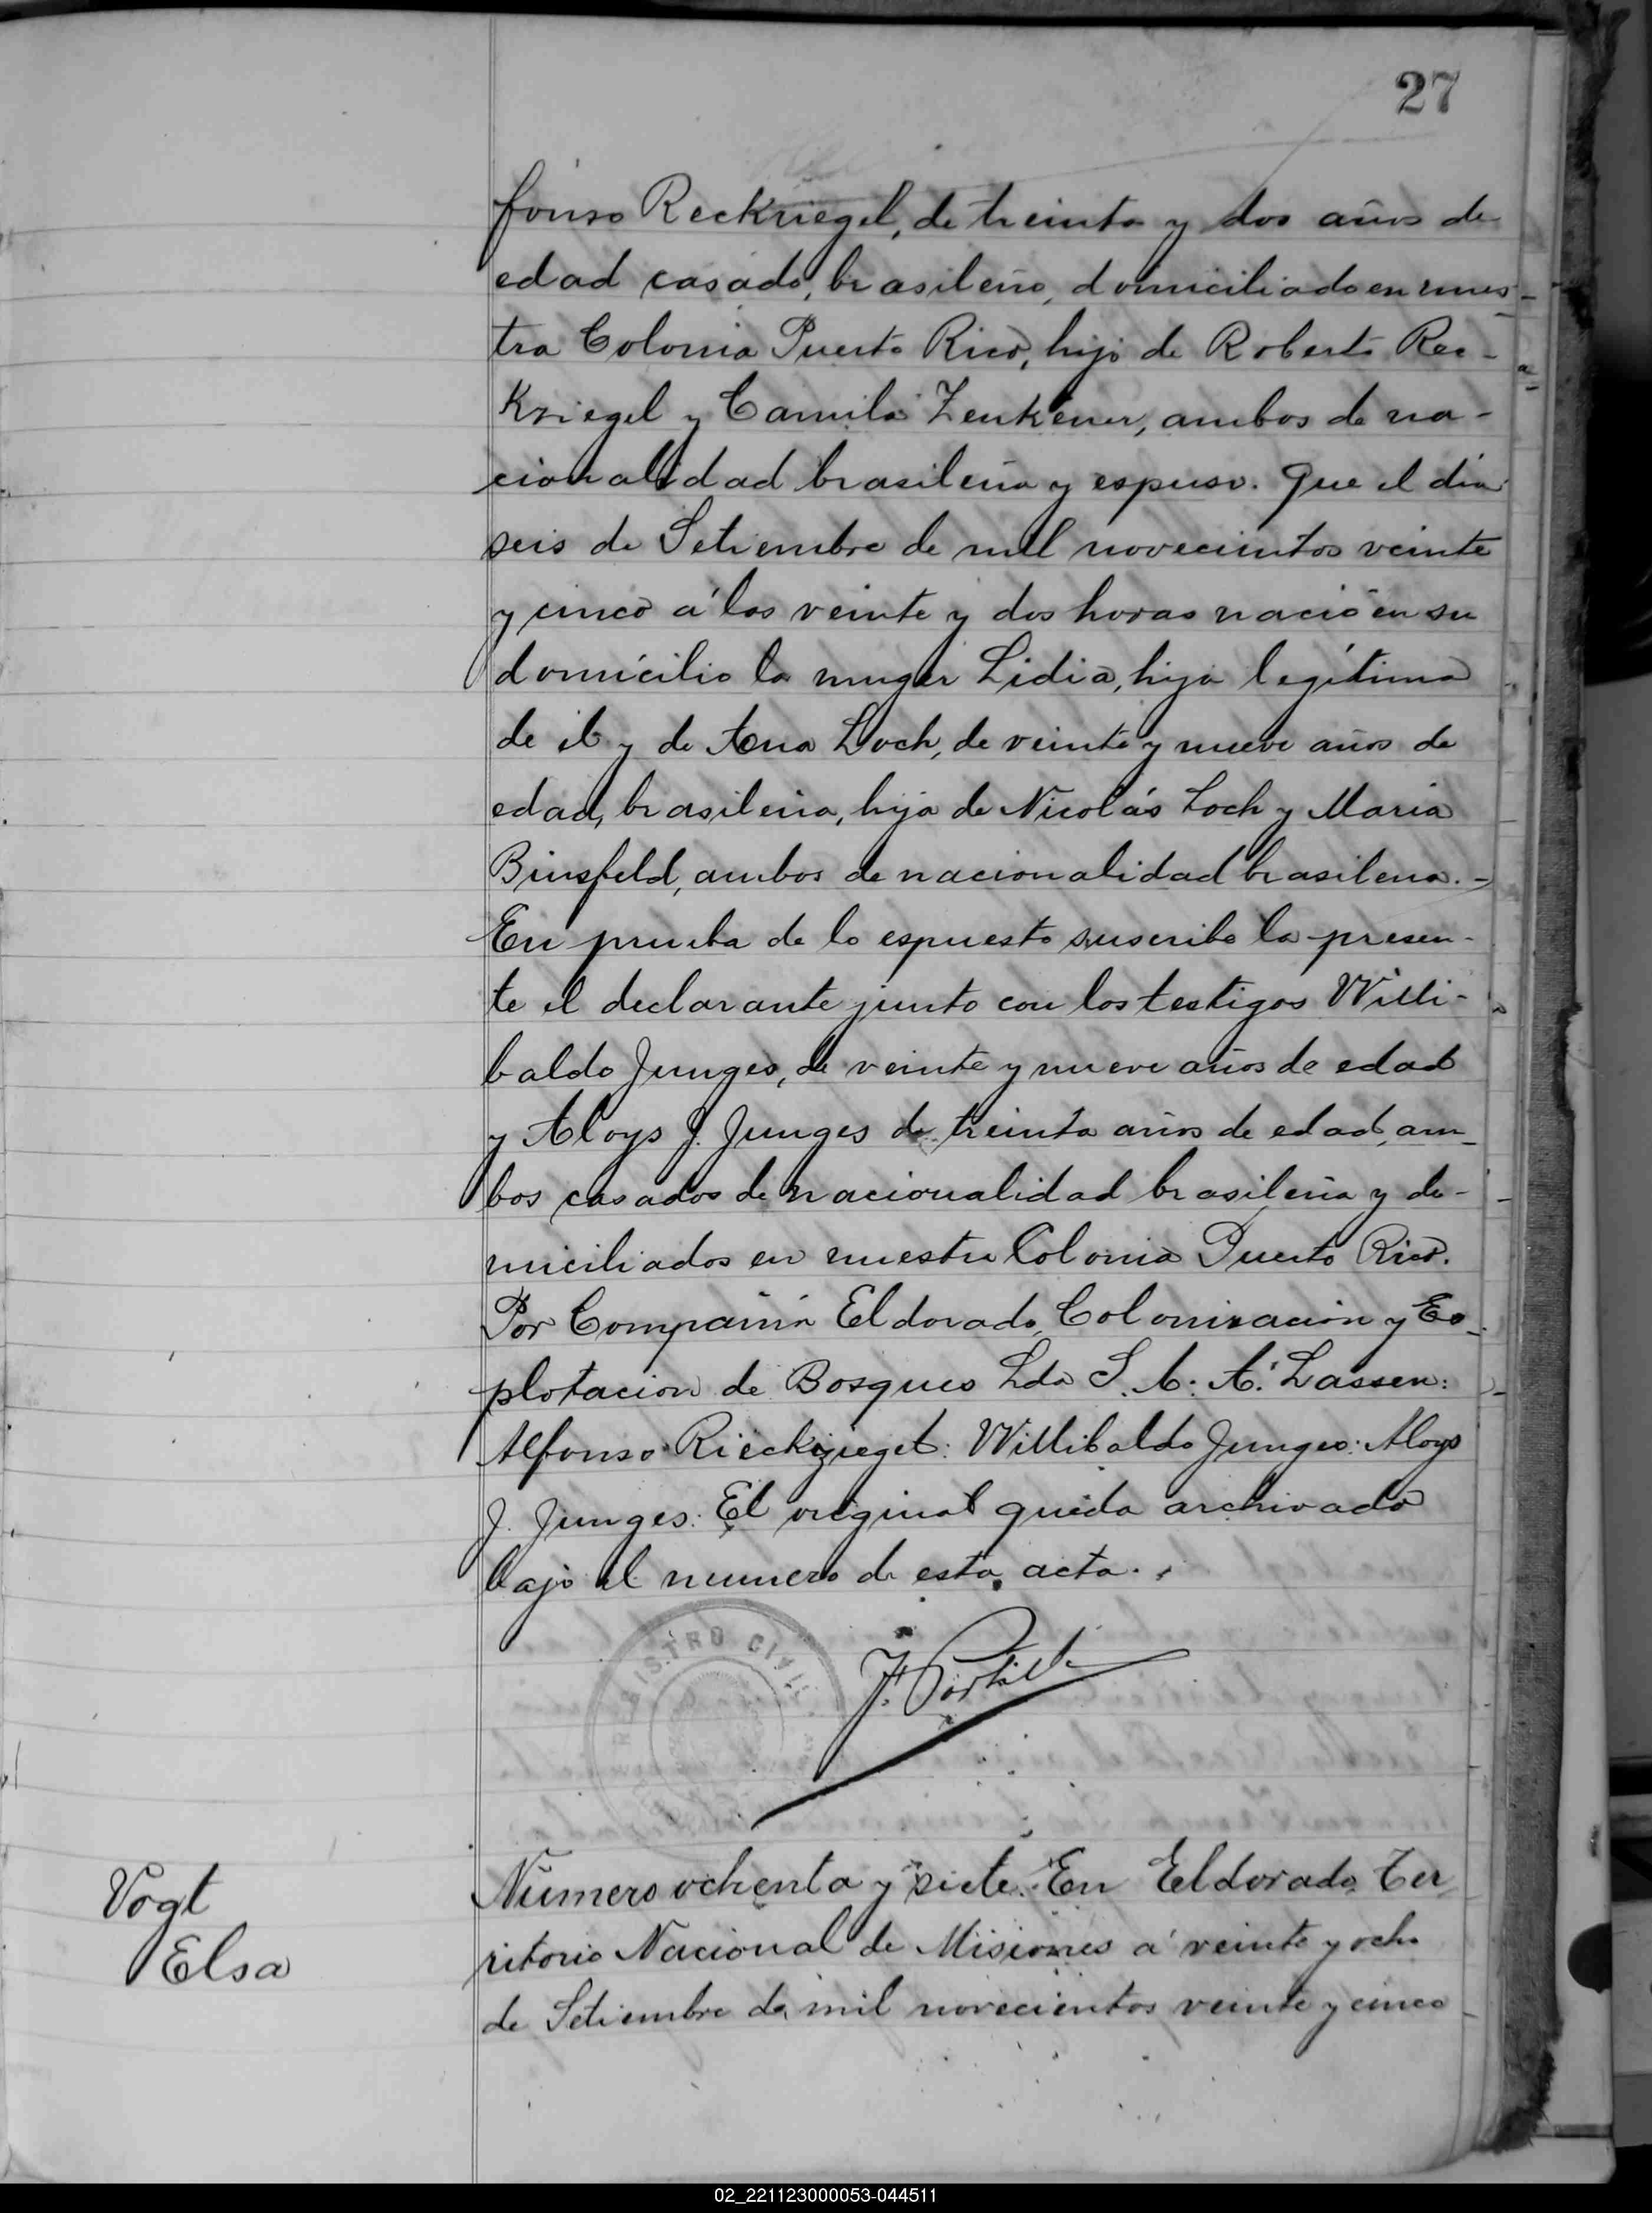 27
fonso Reckriegel, de treinta y dos años de
edad casado, brasileño, domiciliado en nues-
tra Colonia Puerto Rico, hijo de Roberto Rec-
Kriegel y Camila Zenkener, ambos de na-
cionalidad brasileña y espuso. Que el día
seis de Setiembre de mil novecientos veinte
y cinco á las veinte y dos horas nació en su
domicilio la muger Lidia, hija legítima
de él y de Ana Loch, de veinte y nueve años de
edad, brasileña, hija de Nicolás Loch y Maria
Binsfeld, ambos de nacionalidad brasilena.-
En prueba de lo espuesto suscribe la presen-
te el declarante junto con los testigos Willi-
baldo Junges, de veinte y nueve años de edad
y Aloys J. Junges de treinta años de edad, am-
bos casados de nacionalidad brasileña y do-
miciliados en nuestra Colonia Puerto Rico.
Por Compañia Eldorado, Colonización y Es-
plotacion de Bosques Lda S. A. A. Lassen:
Alfonso Rieckrieget: Willibaldo Junges: Aloys
J. Junges: El original queda archivado
bajo el numero de esta acta.
REGISTRO CIVIL
J. Portillo
Vogt
Elsa
Número ochenta y siete. En Eldorado Ter
ritorio Nacional de Misiones á veinte y ocho
de Setiembre de mil novecientos veinte y cinco
02_221123000053-044511